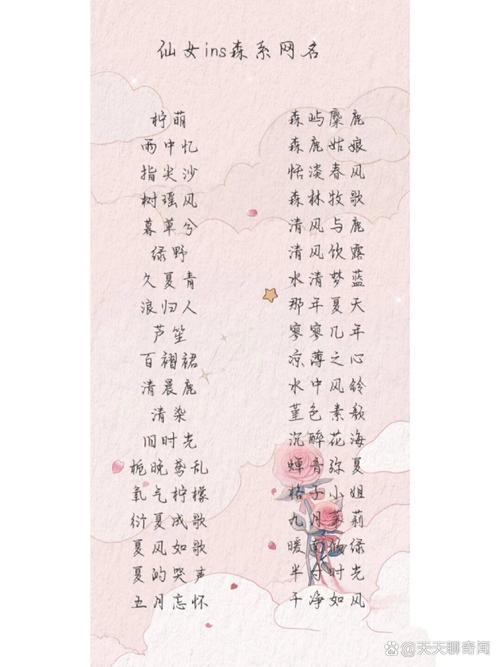 仙女ins森系网名
柠萌
雨中忆
指尖沙
树瑶风
暮草兮
绿野
久夏青
浪归人
芦笙
百褶裙
清晨鹿
清染
旧时光
栀晚鸢乱
氧气柠檬
衍夏成歌
夏风如歌
夏的哭声
五月忘怀
森屿麋鹿
森鹿姑娘
恬淡春风
森林牧歌
清风与鹿
清风饮露
水清梦蓝
那年夏天
寥寥几年
凉薄之心
水中风铃
堇色素颜
沉醉花海
蝉音弥夏
格子小姐
九月茉莉
暖南倾绿
半夏时光
干净如风
@天天聊奇闻